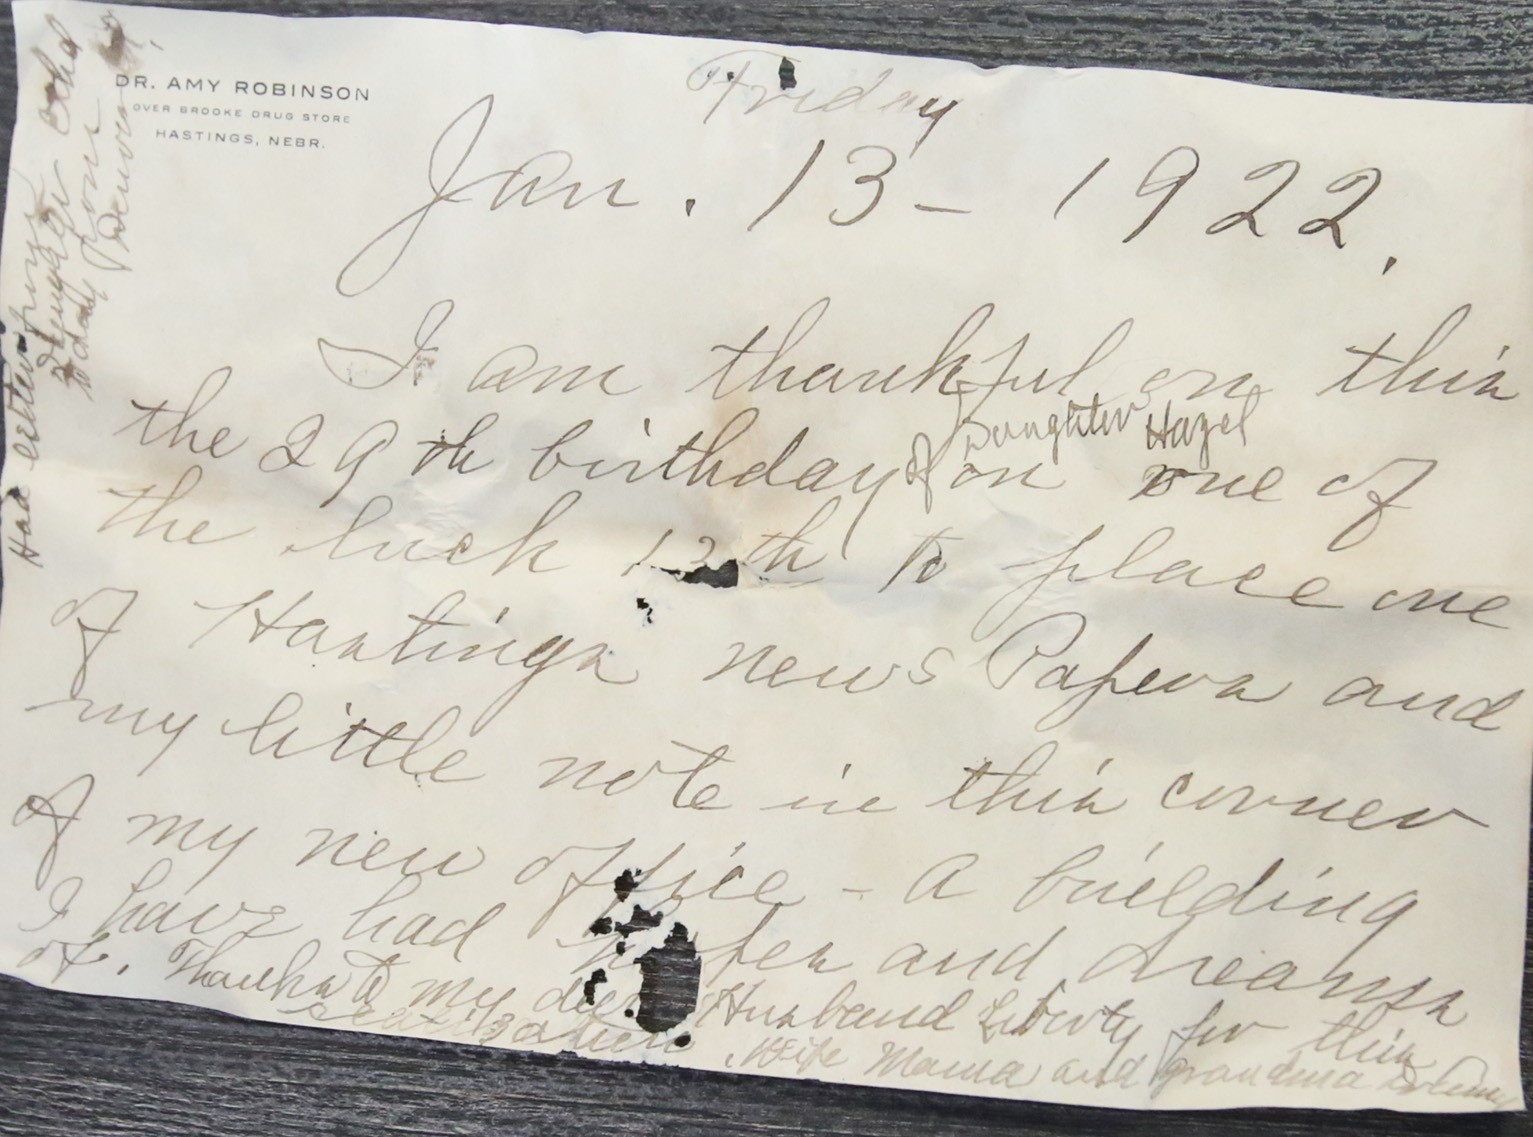 DR. AMY ROBINSON
OVER BROOKE DRUG STORE
HASTINGS, NEBR.
Friday
Jan. 13 - 1922.
I am thankful on this
the 29th birthday of Daughter Hazel on one of
the luck 13th to place one
of Hastings news Papers and
my little note in this corner
of my new office - a building
I have had hopes and dreams
of. Thanks to my dear Husband Liberty for this
realization. Wife Mama and grandma Dr Amy
Had letter from
Denver
today from
Denver